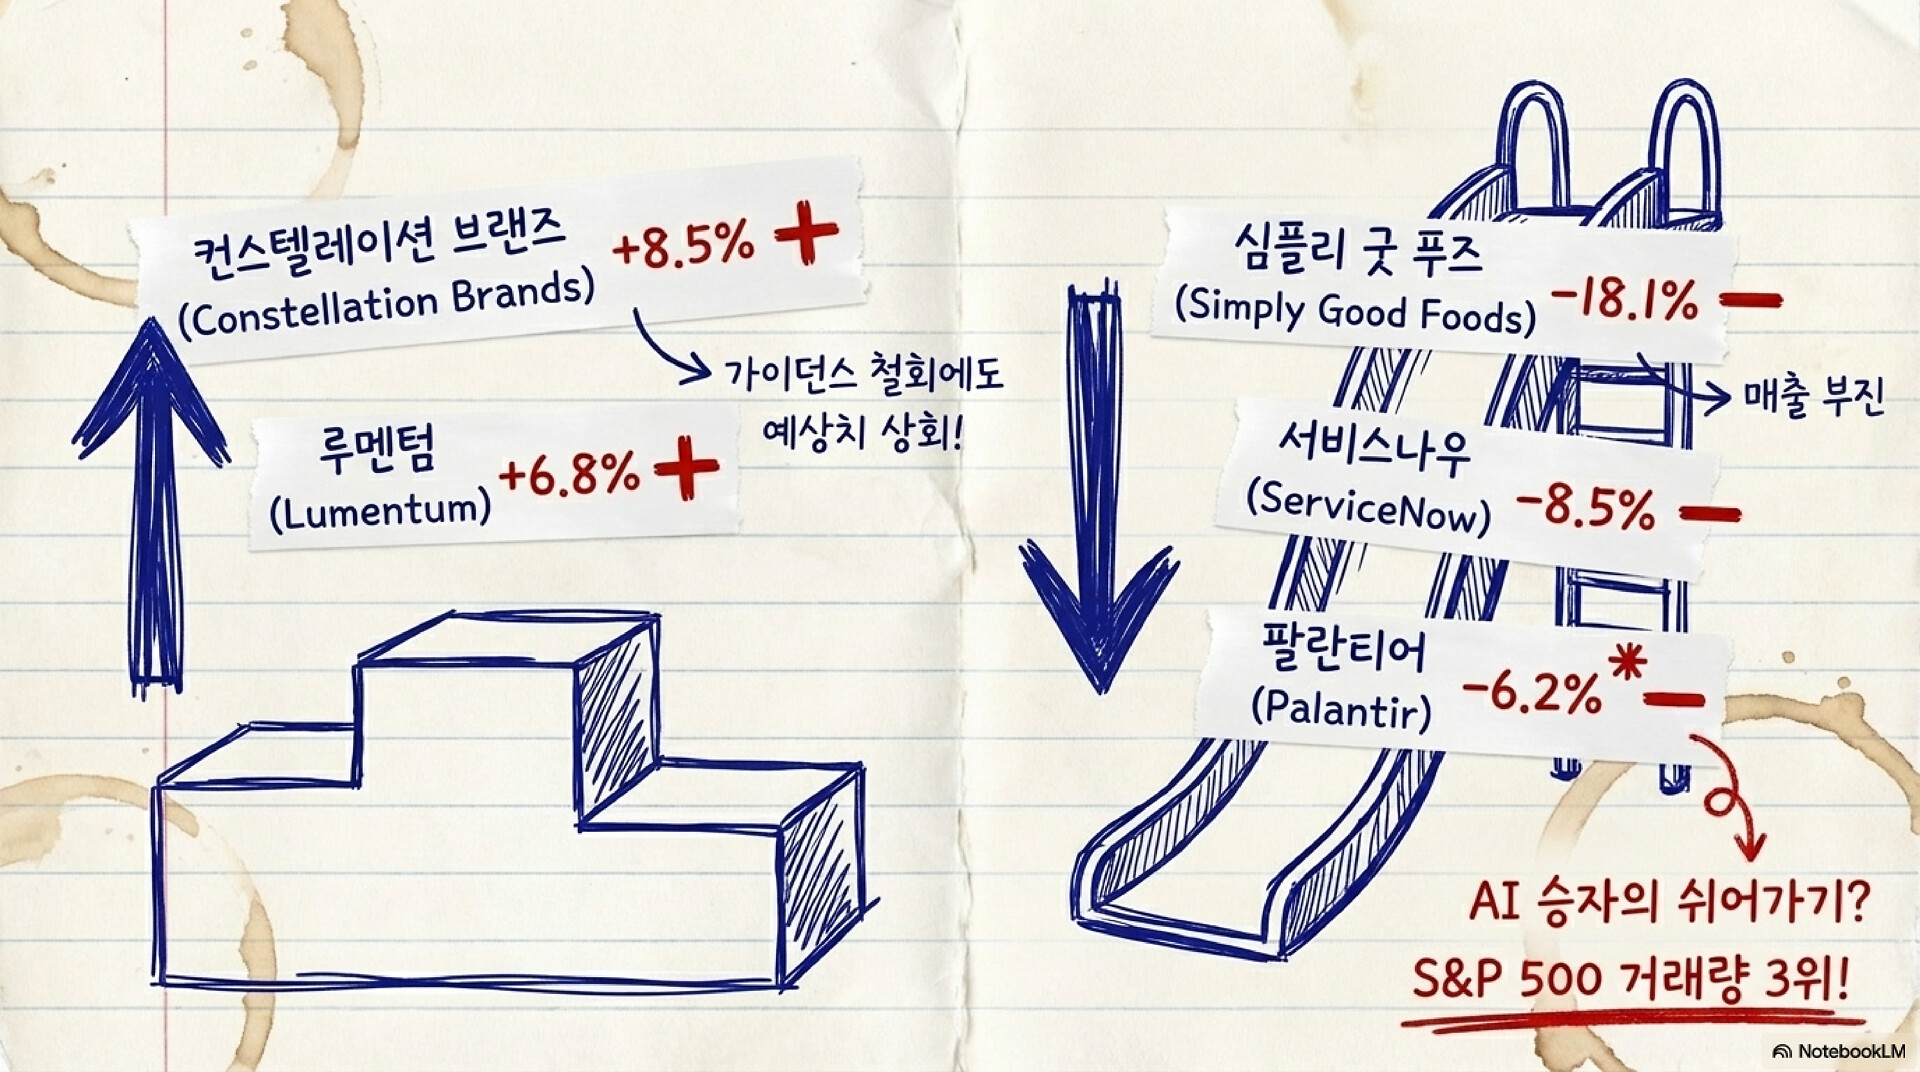 컨스텔레이션 브랜즈
(Constellation Brands)
+8.5% +
가이던스 철회에도
예상치 상회!
루멘텀
(Lumentum)
+6.8% +
심플리 굿 푸즈
(Simply Good Foods)
-18.1% -
매출 부진
서비스나우
(ServiceNow)
-8.5% -
팔란티어
(Palantir)
-6.2%* -
AI 승자의 쉬어가기?
S&P 500 거래량 3위!
NotebookLM